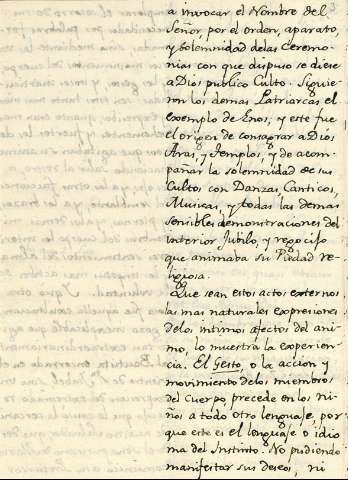 a invocar el Nombre del
Señor, por el orden, aparato,
y solemnidad delas Ceremo-
nias con que dispuso se diese
a Dios publico Culto. Siguie-
ron los demas Patriarcas el
exemplo de Enos, y este fue
el origen de consagrar a Dios
Aras, y Templos, y de acom-
pañar la solemnidad de sus
Cultos con Danzas, Canticos,
Musicas, y todas las demas
sensibles demonstraciones del
interior Jubilo, y regocijo
que animaba su Piedad re-
ligiosa.
Que sean estos actos externos
las mas naturales expresiones
delos intimos afectos del ani-
mo, lo muestra la experien-
cia. El Gesto o la accion y
movimiento delos miembros
del Cuerpo precede en los ni-
ños a todo otro lenguaje, por
que este es el lenguaje o idio
ma del Instinto. No pudiendo
manifestar sus deseos, ni